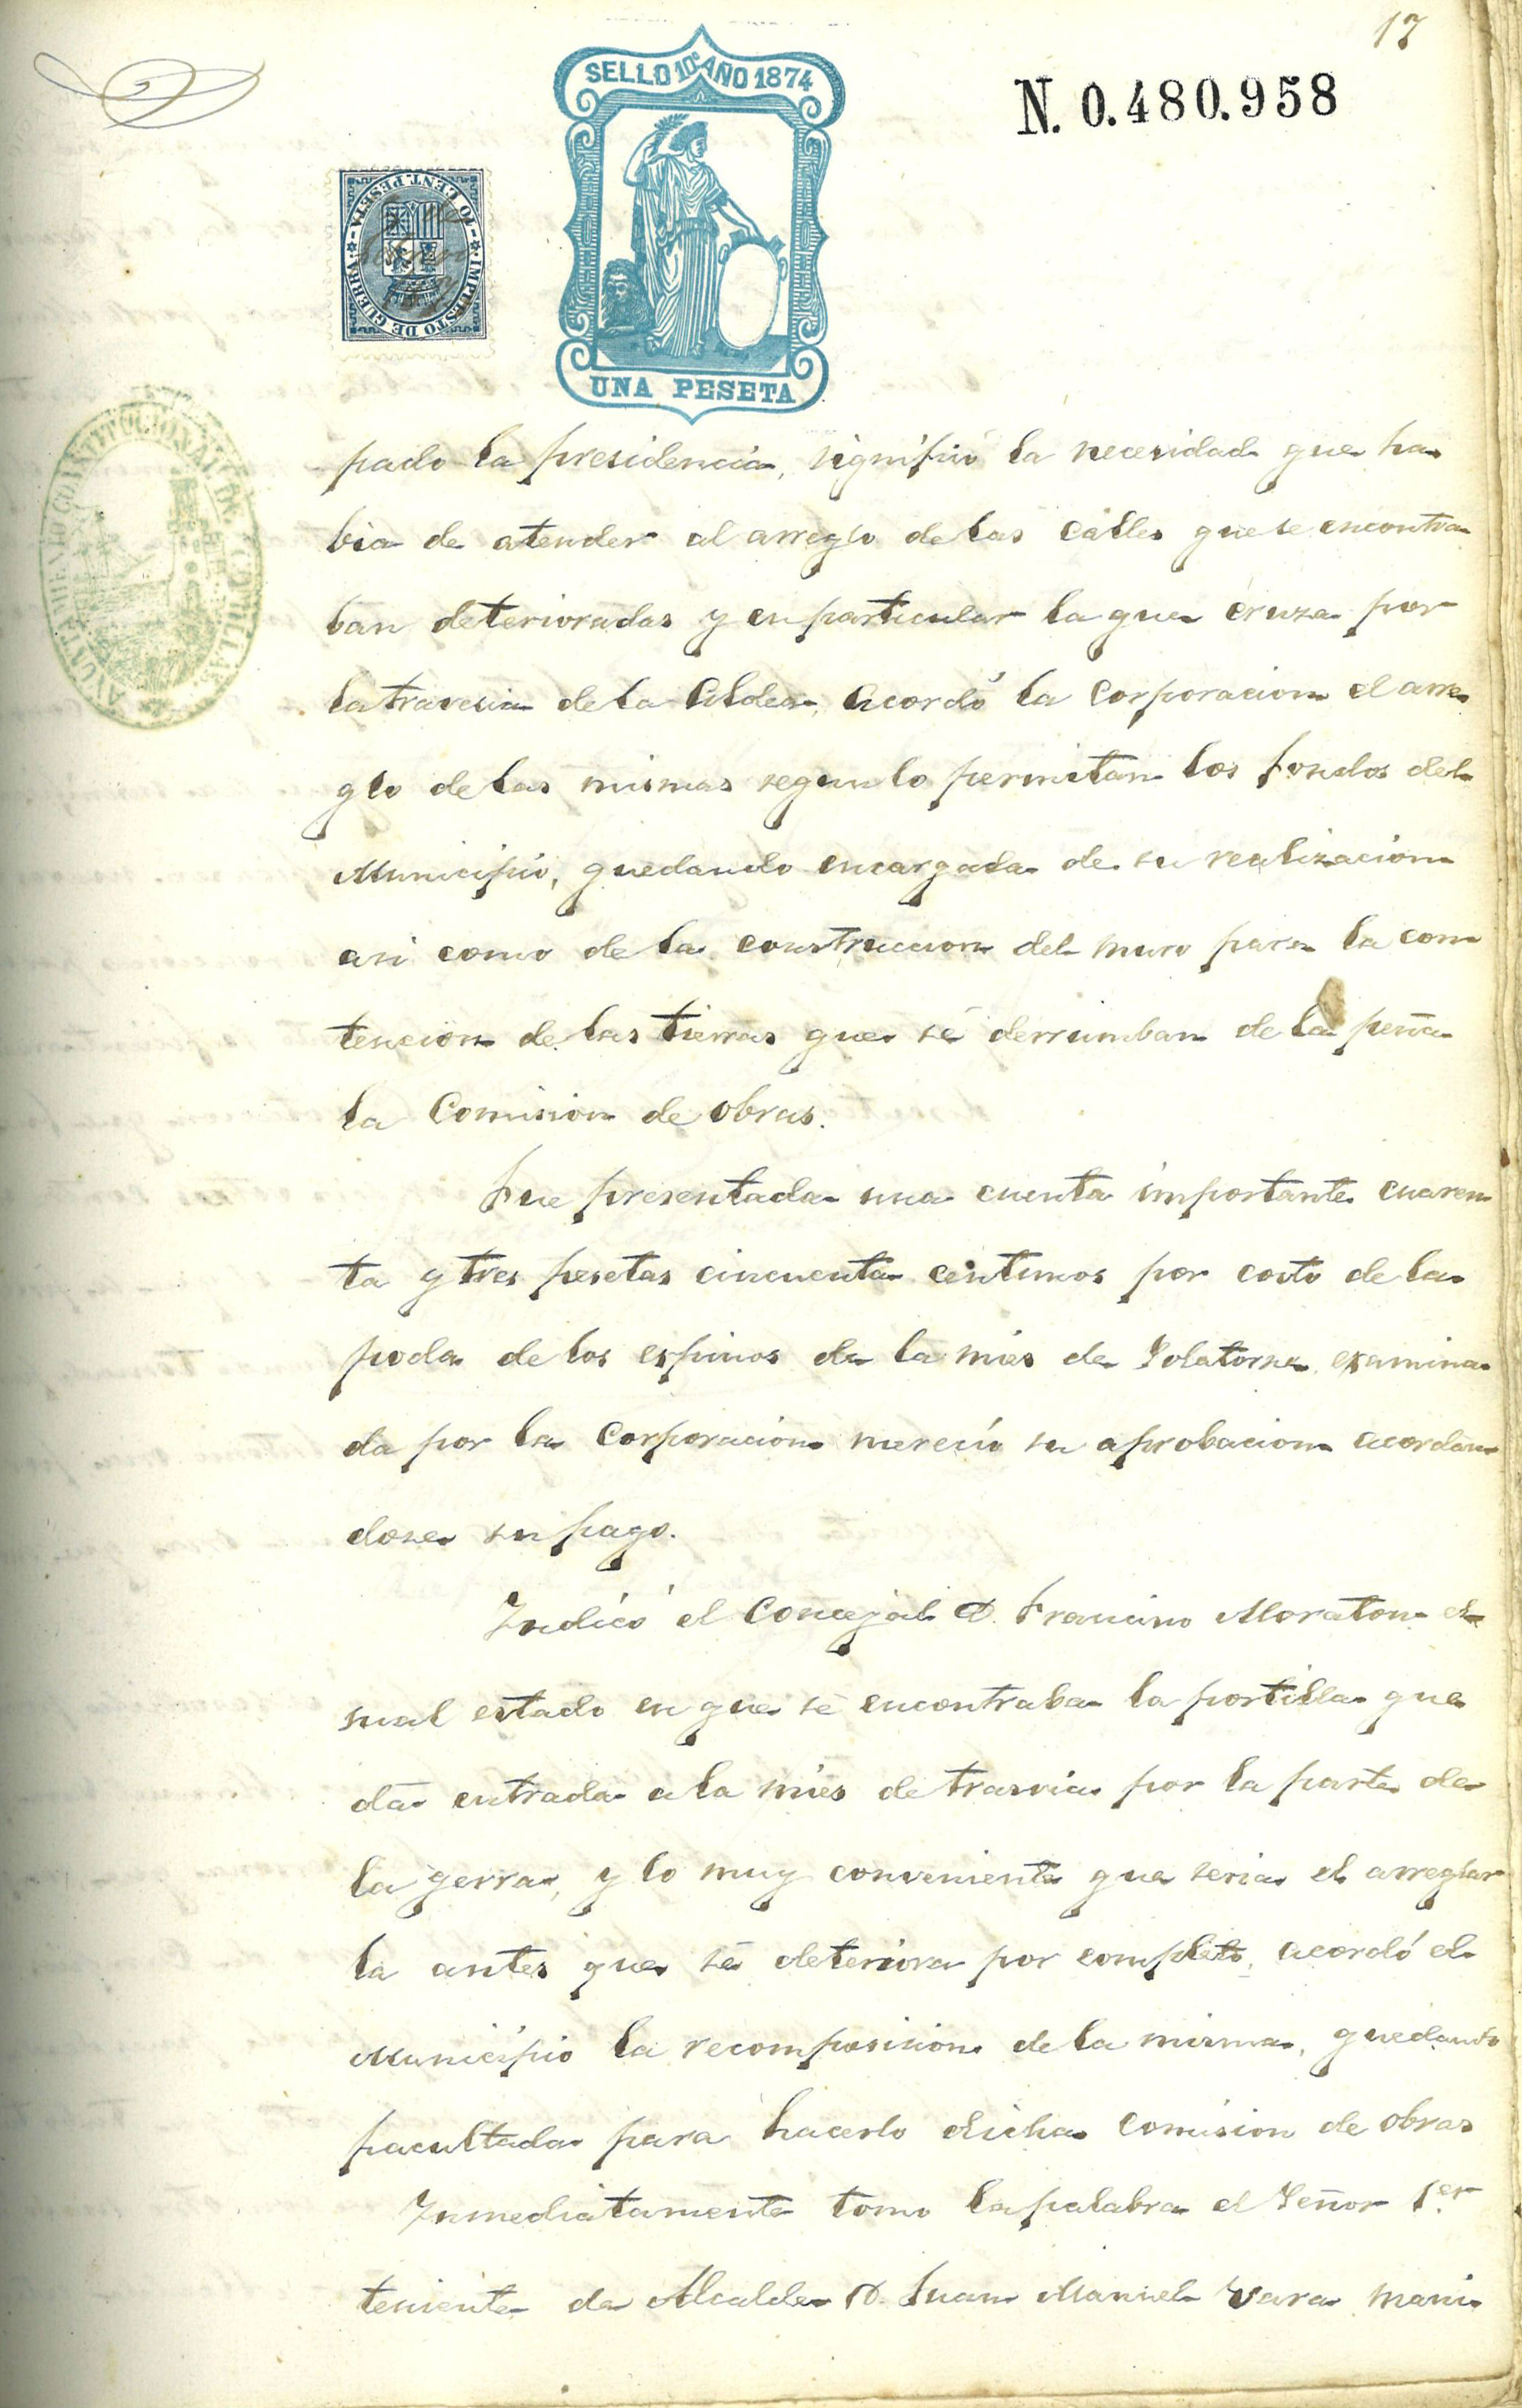 17
SELLO 10º AÑO 1874
N. 0.480.958
10 CENT. PESETA
IMPUESTO DE GUERRA
UNA PESETA
AYUNTAMIENTO CONSTITUCIONAL DE COMILLAS
pado la presidencia, significó la necesidad que ha
bia de atender al arreglo de las calles que se encontra
ban deterioradas y en particular la que cruza por
la travesia de la Aldea, Acordó la Corporacion el arre
glo de las mismas segun lo permitan los fondos del
Municipio, quedando encargada de su realizacion
asi como de la construccion del muro para la con
tencion de las tierras que se derrumban de la peña
la Comision de obras.
Fue presentada una cuenta importante cuaren
ta y tres pesetas cincuenta centimos por costo de la
poda de los espinos de la mies de Solatorre examina
da por la Corporacion mereció su aprobacion acordan
dose su pago.
Indicó el Concejal D. Francisco Moraton el
mal estado en que se encontraba la portilla que
da entrada a la mies de trasvia por la parte de
la gerra, y lo muy conveniente que seria el arreglar
la antes que se deteriora por completo, acordó el
Municipio la recomposicion de la misma, quedando
facultada para hacerlo dicha Comision de obras
Inmediatamente tomo la palabra el Señor 1.er
teniente de Alcalde D. Juan Manuel Vara mani